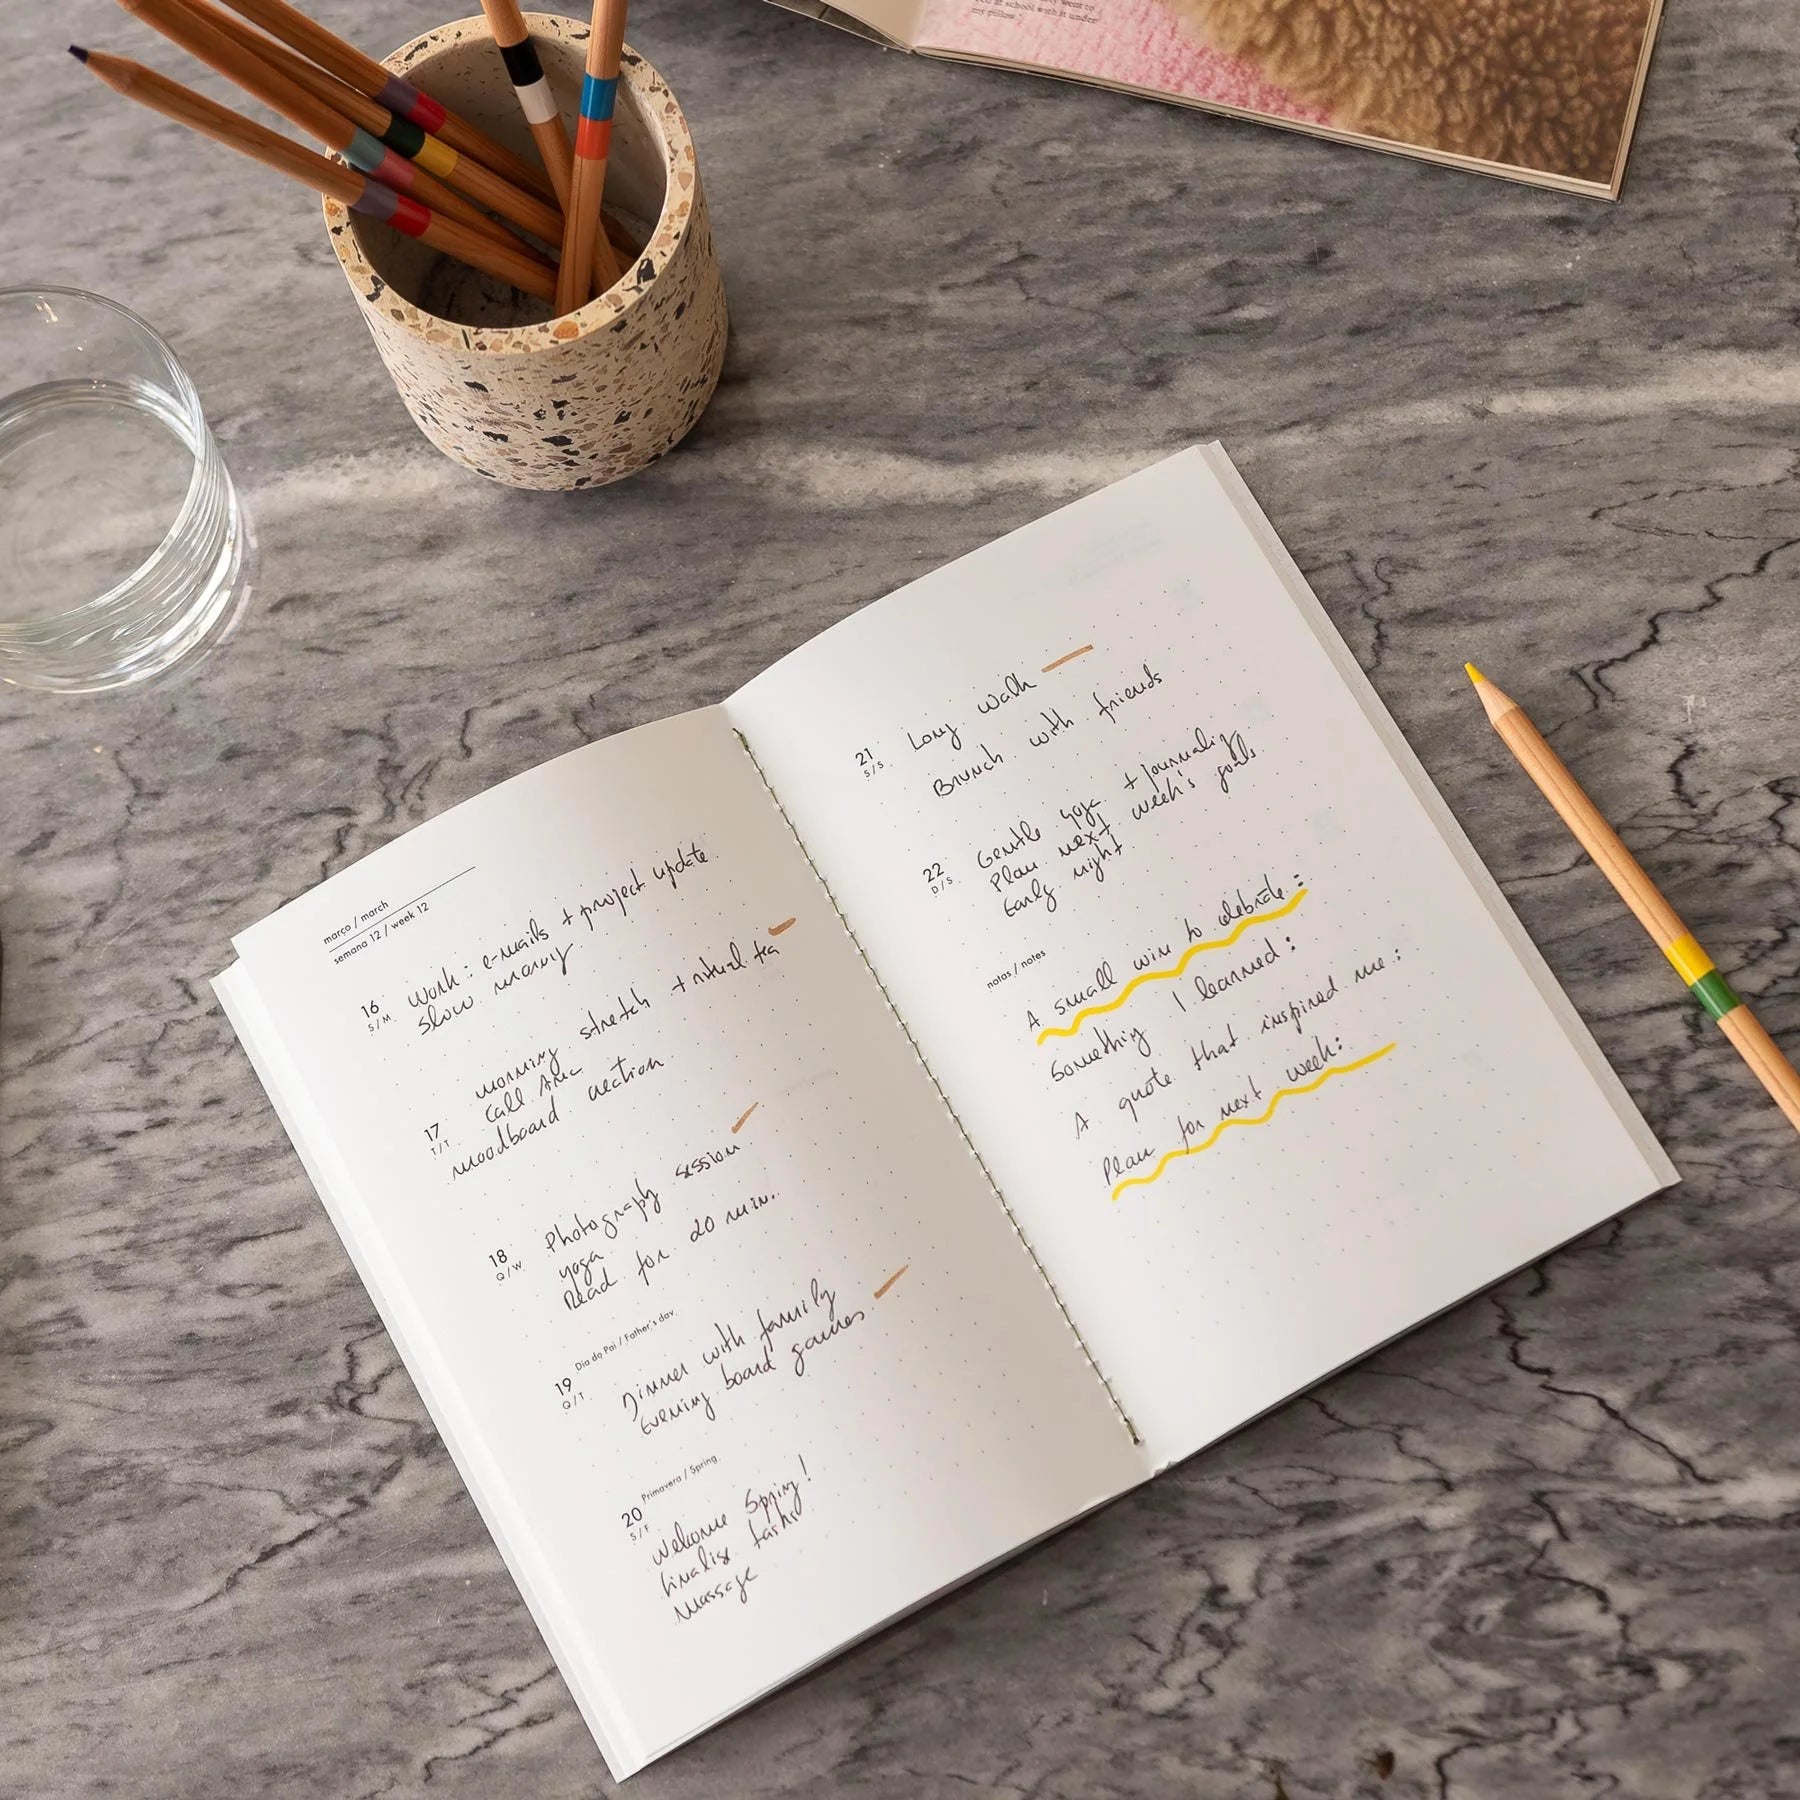 março / march
semana 12 / week 12
16
S/M
Work: e-mails + project update
Slow morning
17
T/T
morning stretch + ritual tea
Call Ana
moodboard
18
Q/W
Photography session
yoga
Read for 20 min.
Dia do Pai / Father's day
19
Q/T
Dinner with family
Evening board games
Primavera / Spring
20
S/F
Welcome Spring!
finalise tasks
massage
21
S/S
Long walk
Brunch with friends
22
D/S
Gentle yoga + journaling
Plan next week's goals
Early night
notas / notes
A small win to celebrate:
Something I learned:
A quote that inspired me:
Plan for next week:
at school with it under
my pillow.